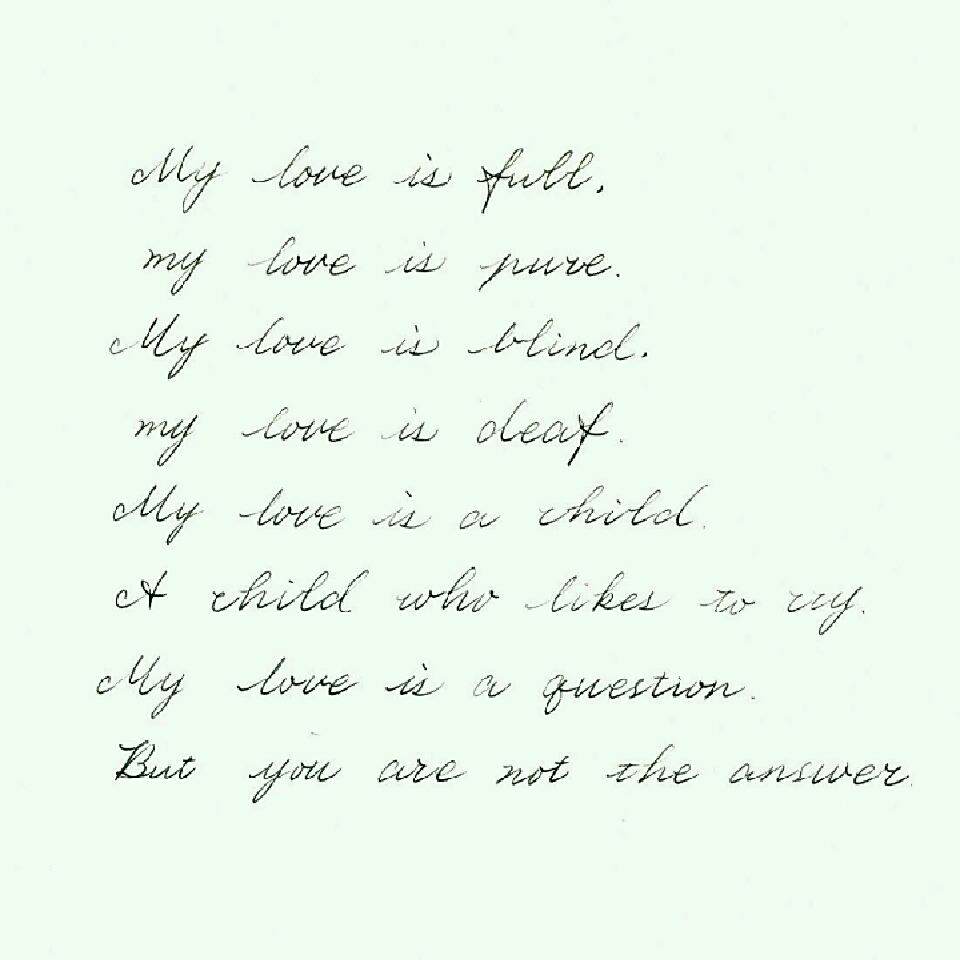 My love is full,
my love is pure.
My love is blind.
my love is deaf.
My love is a child.
A child who likes to cry.
My love is a question.
But you are not the answer.